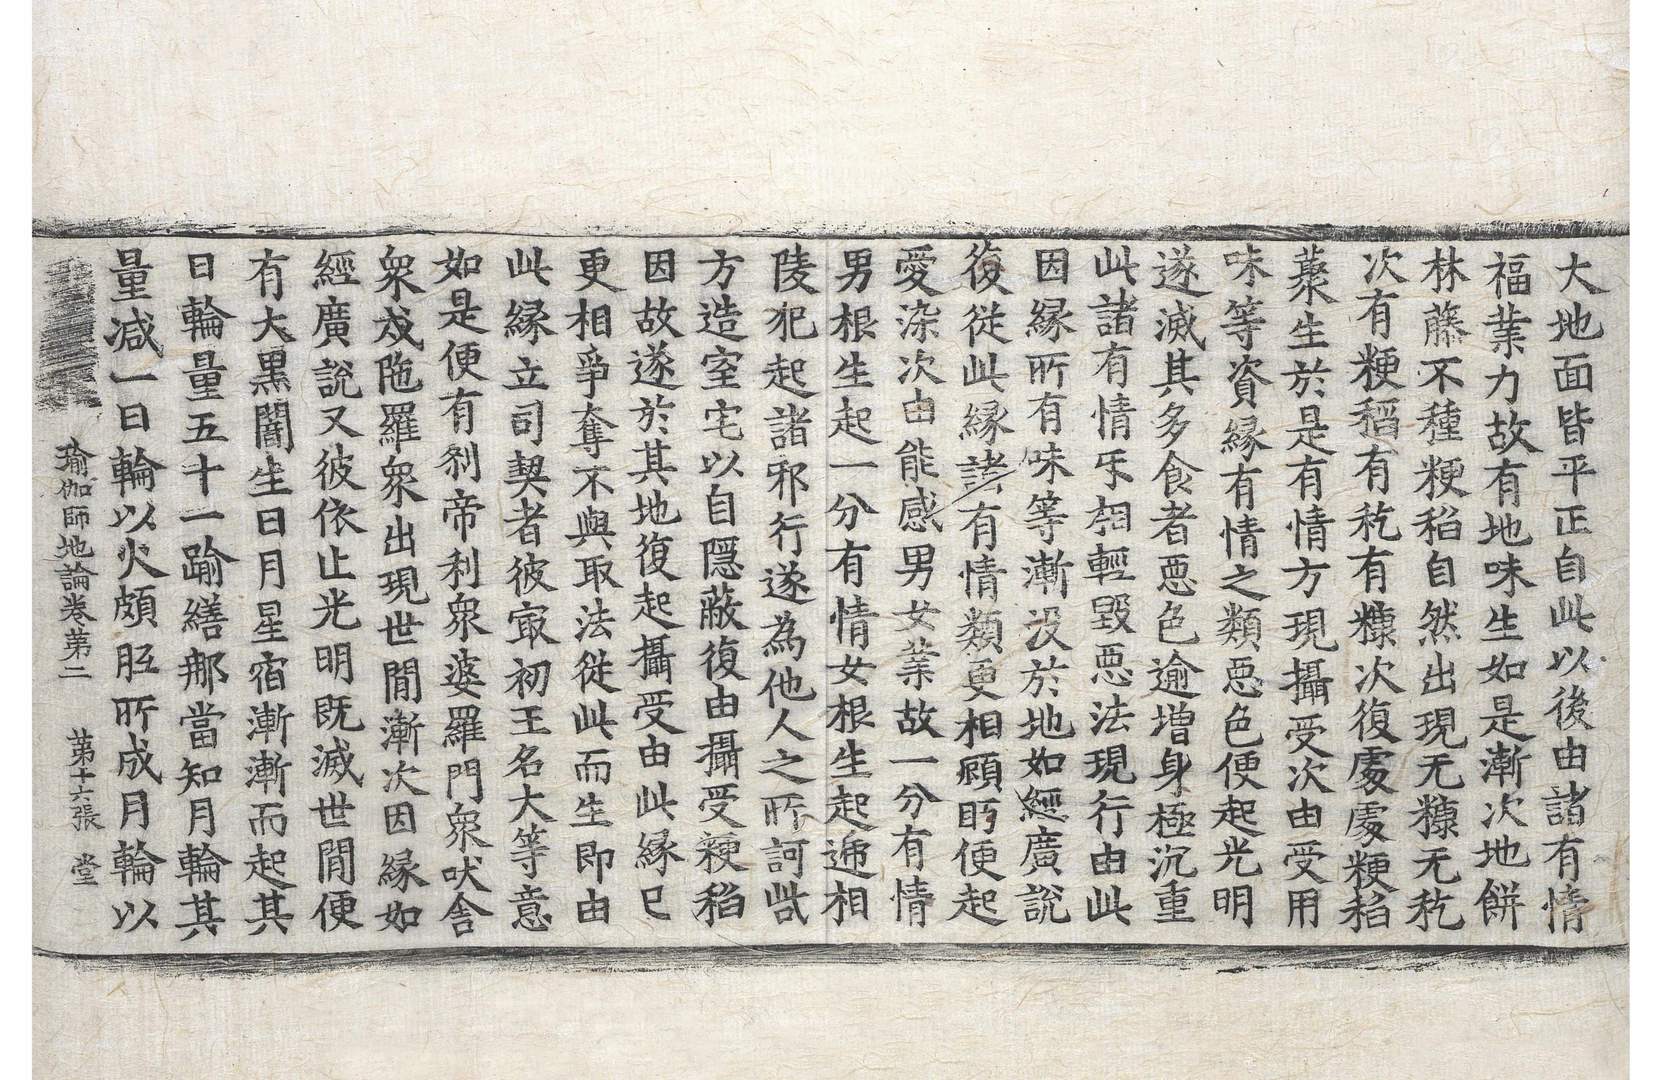 大地面皆平正自此以後由諸有情
福業力故有地味生如是漸次地餅
林藤不種粳稻自然出現无糠无秔
次有粳稻有秔有糠次復處處粳稻
藂生於是有情方現攝受次由受用
味等資縁有情之類惡色便起光明
遂滅其多食者惡色逾增身極沉重
此諸有情互相輕毀惡法現行由此
因縁所有味等漸没於地如經廣說
復從此縁諸有情類更相顧眄便起
愛染次由能感男女業故一分有情
男根生起一分有情女根生起遞相
陵犯起諸邪行遂為他人之所訶呰
方造室宅以自隱蔽復由攝受粳稻
因故遂於其地復起攝受由此縁已
更相爭奪不與取法從此而生即由
此縁立司契者彼㝡初王名大等意
如是便有刹帝利衆婆羅門衆吠舍
衆戍陁羅衆出現世間漸次因縁如
經廣說又彼依止光明既滅世間便
有大黒闇生日月星宿漸漸而起其
日輪量五十一踰繕那當知月輪其
量減一日輪以火頗胝所成月輪以
瑜伽師地論卷第二 第十六張 堂